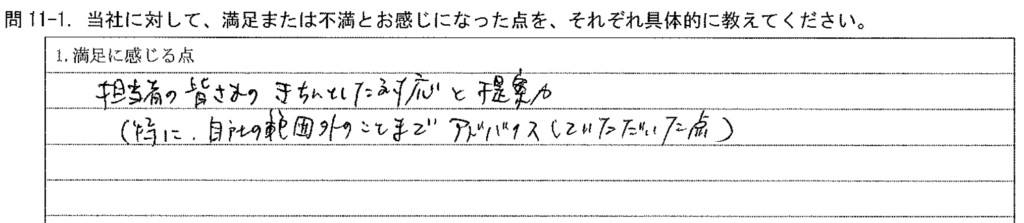 問 11-1. 当社に対して、満足または不満とお感じになった点を、それぞれ具体的に教えてください。
1. 満足に感じる点
担当者の皆さまの きちんとした対応と提案力
(特に、自社の範囲外のことまで アドバイスしていただいた点)